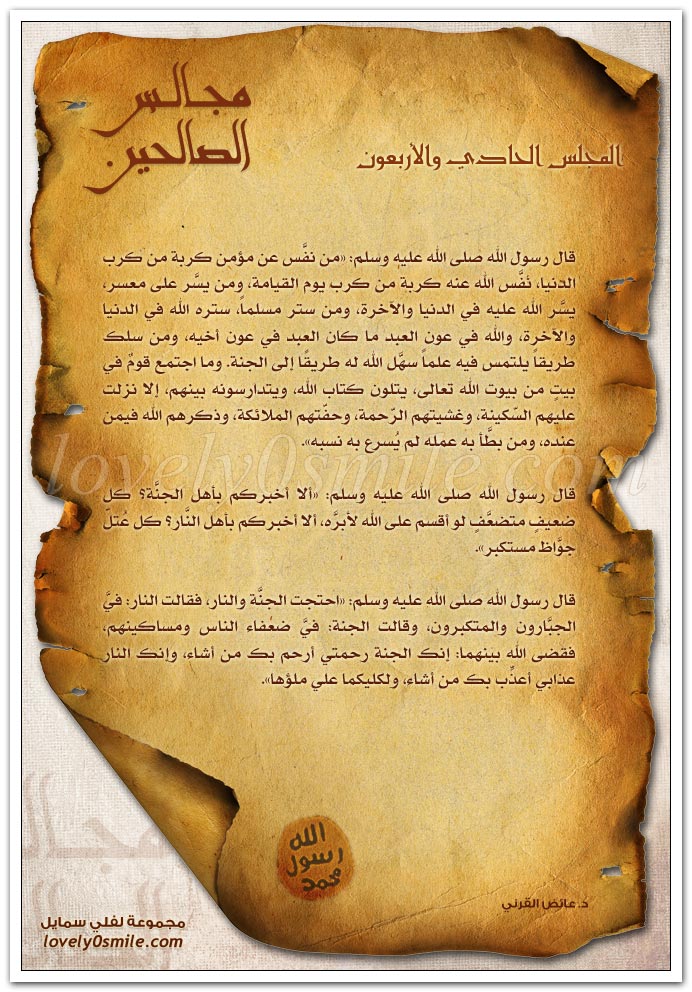 مجالس
الصالحين
المجلس الحادي والأربعون
قال رسول الله صلى الله عليه وسلم: «من نفَّس عن مؤمن كربة من كرب
الدنيا، نُفَّس الله عنه كربة من كرب يوم القيامة، ومن يسَّر على معسر،
يسَّر الله عليه في الدنيا والآخرة، ومن ستر مسلماً، ستره الله في الدنيا
والآخرة، والله في عون العبد ما كان العبد في عون أخيه، ومن سلك
طريقاً يلتمس فيه علماً سهَّل الله له طريقًا إلى الجنة. وما اجتمع قومٌ في
بيتٍ من بيوت الله تعالى، يتلون كتاب الله، ويتدارسونه بينهم، إلا نزلت
عليهم السّكينة، وغشيتهم الرّحمة، وحفّتهم الملائكة، وذكرهم الله فيمن
عنده، ومن بطَّأ به عمله لم يُسرع به نسبه».
lovely0smile.com
قال رسول الله صلى الله عليه وسلم: «ألا أخبركم بأهل الجنَّة؟ كل
ضعيفٍ متضعَّفٍ لو أقسم على الله لأبرَّه، ألا أخبركم بأهل النَّار؟ كل عُتلّ
جوَّاظ مستكبر».
قال رسول الله صلى الله عليه وسلم: «احتجت الجنَّة والنار، فقالت النار: فيَّ
الجبَّارون والمتكبرون، وقالت الجنة: فيَّ ضعُفاء الناس ومساكينهم،
فقضى الله بينهما: إنك الجنة رحمتي أرحم بك من أشاء، وإنك النار
عذابي أعذِّب بك من أشاء، ولكليكما علي ملؤها».
الله
رسول
محمد
د. عائض القرني
مجموعة لفلي سمايل
lovely0smile.com
مجالس
الصالحين